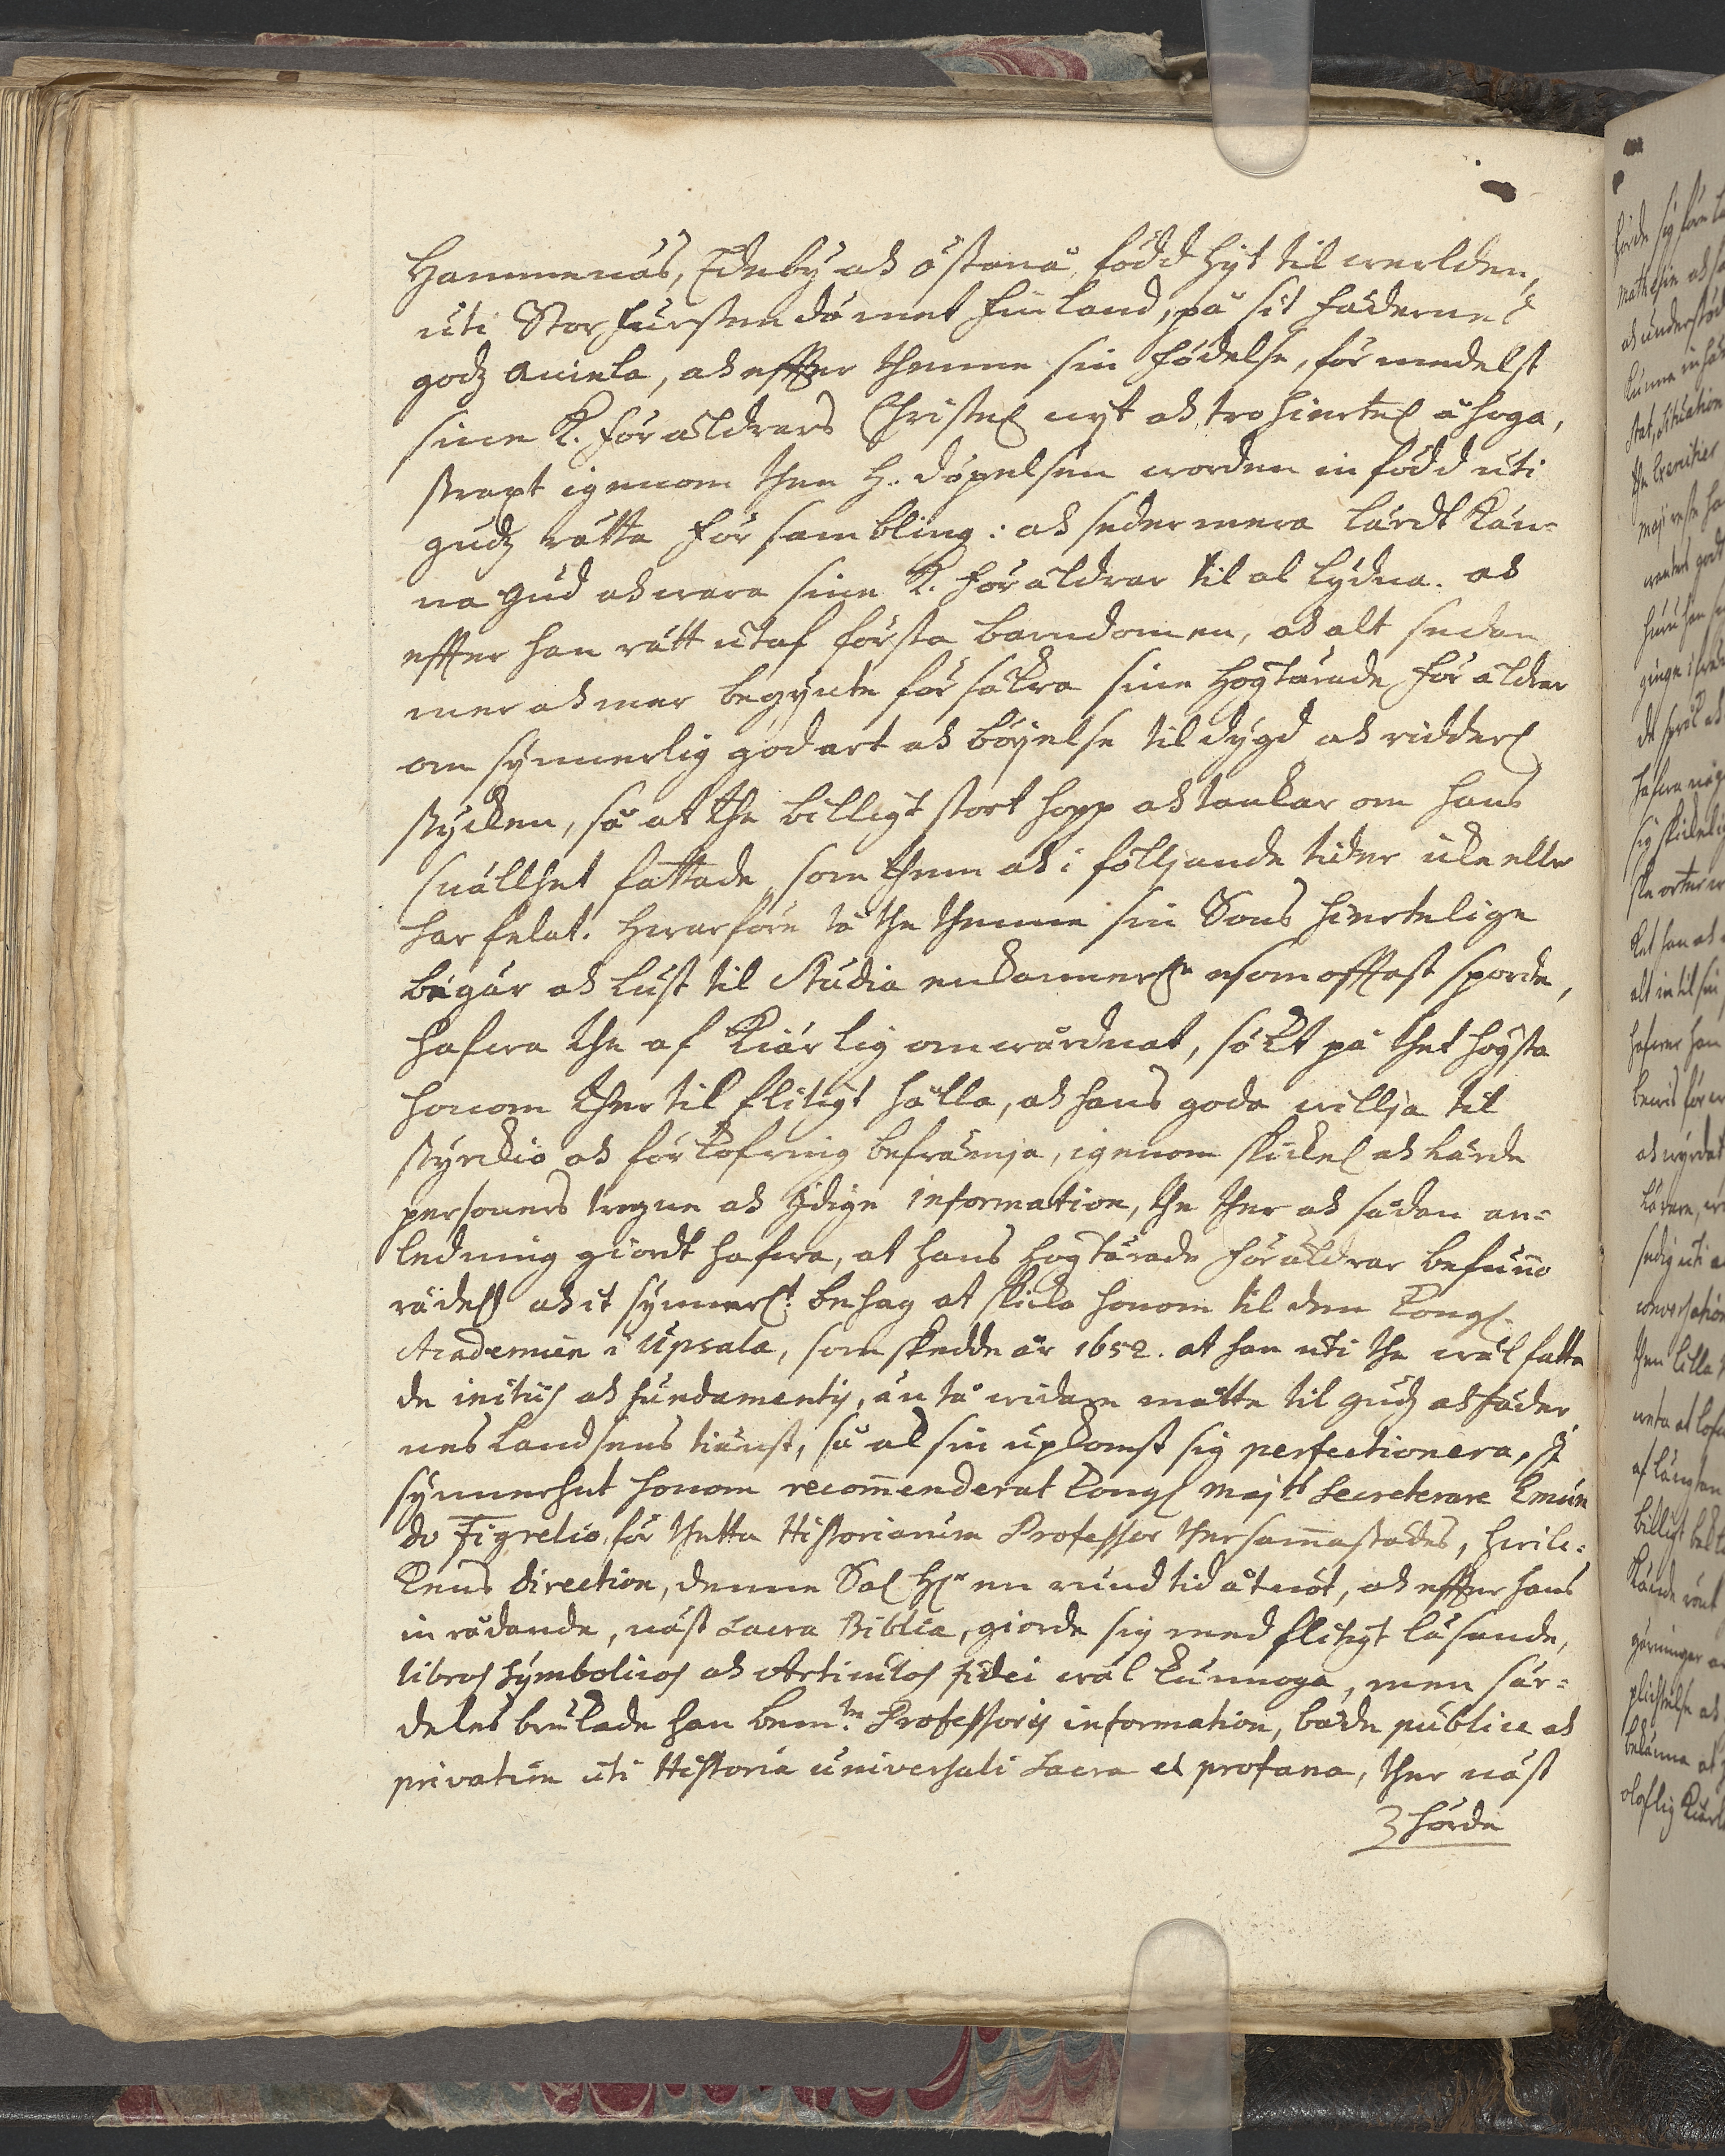 Hammenäs, Edeby och Östanå, född hijt til werlden,
uti Storfurstendömet Finland, på sit fädernes
godz Aviela, och effter thenne sin födelse, förmedelst
sine K. Föräldrars Christel nyt och trohiertel åhoga,
straxt igenom then H. döpelsen worden införd uti
gudz rätta försambling: och sedermera lärdt Kän-
na Gud och wara sine K. Föräldrar til al lydna. och
effter han rätt utaf första barndomen, och alt sedan
mer och mer begynte försäkra sine Högtärade Föräldrar
om synnerlig godart och böyelse til dygd och ridderl
stycken, så at the billigt stort hopp och tankar om hans
snällhet fattade, som them och i fölljande tider icke eller
har felat. Hwarföre tå the thenne sin Sons hiertelige
begär och lust til Studia enkannerln esomofftast sporde,
hafwa the af Kiärlig omwårdnat, sökt på thet högsta
honom ther til flitigt hålla, och hans goda willja til
styrckio och förkofring befrämja, igenom skickel och lärde
personers trogne och jdige information, the ther och sådan an-
ledning giordt hafwa, at hans Högtärade Föräldrar befunno
rådel och it synnerlt behag at skicka honom til den Kongl.
Academien i Upsala, som skedde år 1652. at han uti the wäl fatta
de initiis och fundamentis, än tå widare måtte til gudz och fäder
nes Landsens tienst, så al sin upkomst sig perfectionera, i
synnerhet honom recommenderat Kongl Maj:ts Secreterare Emun
do Figrelio, för thetta Historiarum Professor thersammastädes, hwilc-
kens direction, denne Sal Hr en rund tid åtniöt, och effter hans
inrådande, näst Sacra Biblia, giorde sig med flitigt läsande,
libros Symbolicos och Articulos fidei wäl kunnoga, men sär-
deles brukade han bemte Professoris information, både publice och
privatim uti Historia universali Sacra et profana, ther näst
hörde